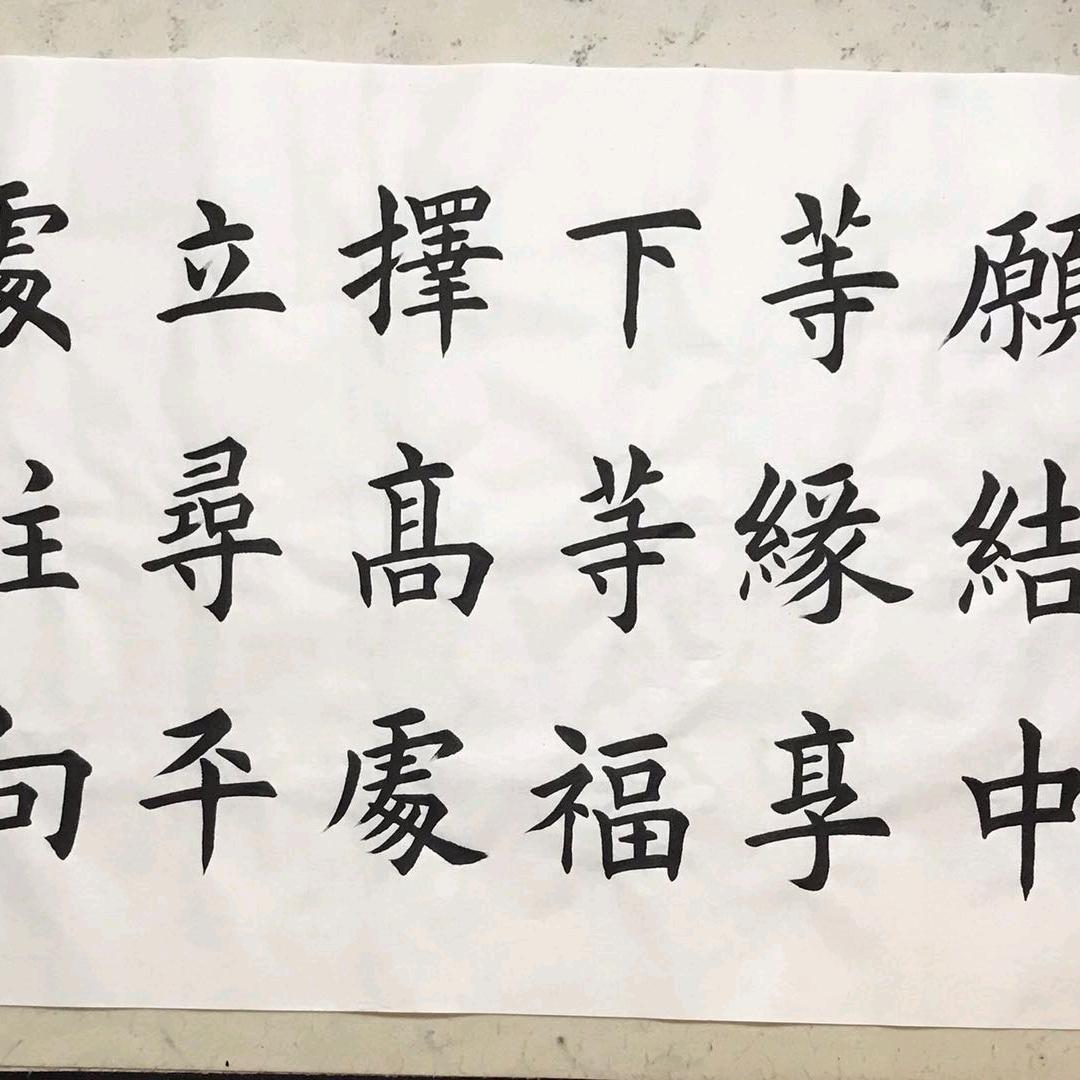 願結中
等緣享
下等福
擇髙處
立尋平
處住向